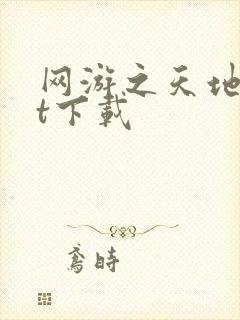 网游之天地
t下载
鸢时